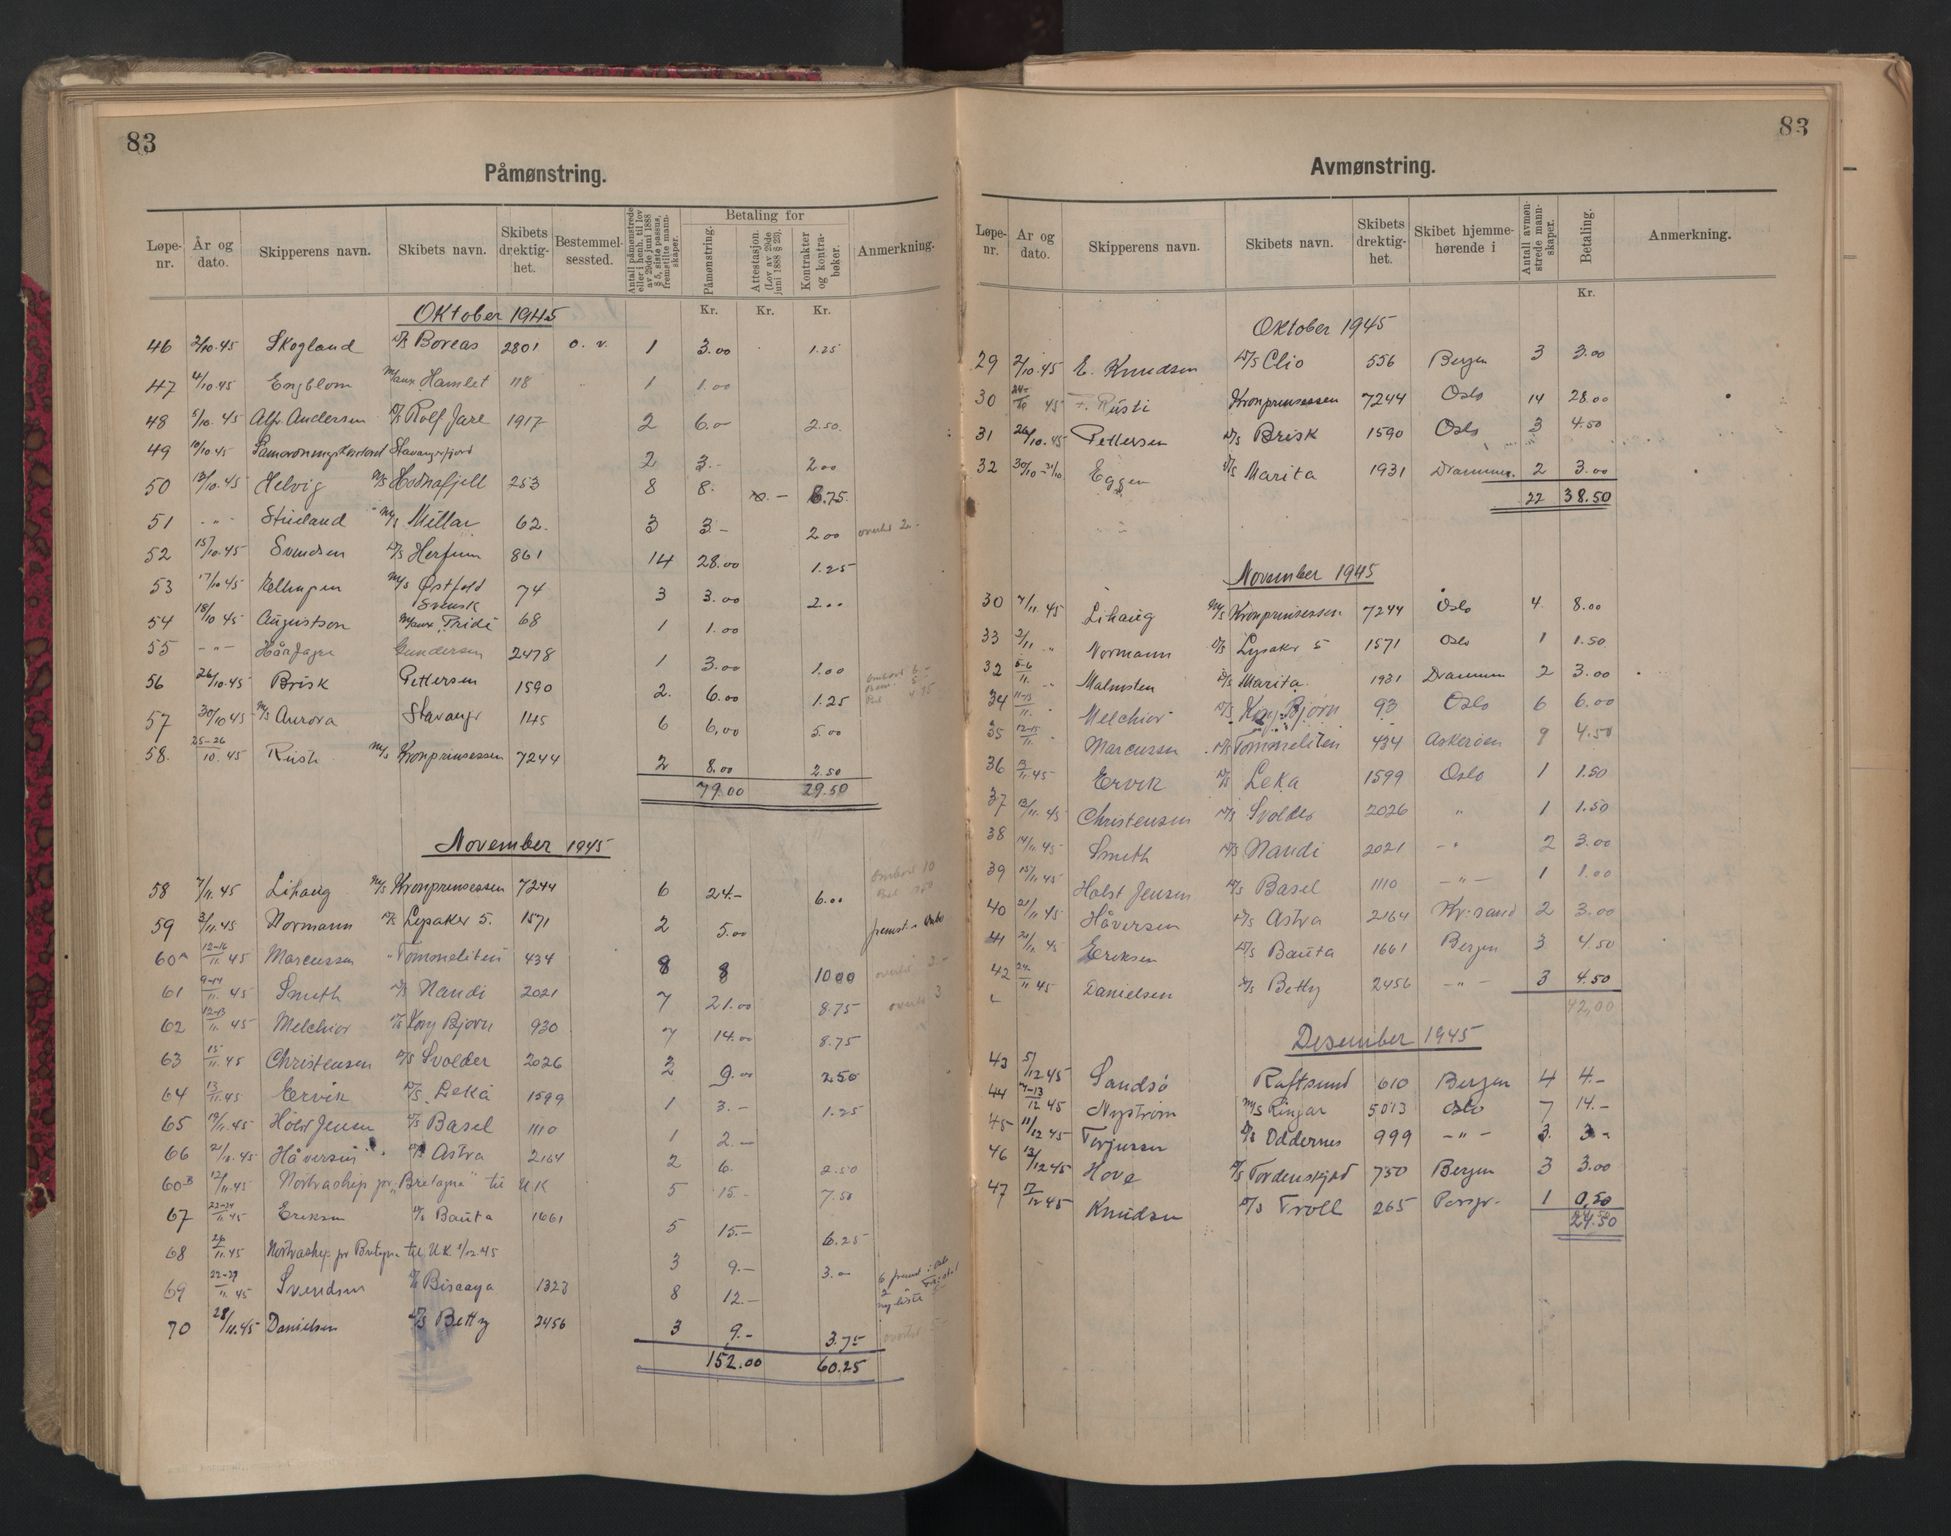 83
Påmønstring.
Løpe-nr. År og dato. Skipperens navn. Skibets navn. Skibets drektig-het. Bestemmel-sessted. Antall påmønstrede eller i henh. til lov av 29de juni 1888 § 5, siste passus, fremstilte mann-skaper. Betaling for Påmønstring. Attestasjon. (Lov av 29de juni 1888 § 23). Kontrakter og kontra-bøker. Anmerkning.
Kr. Kr. Kr.
Oktober 1945
46 2/10.45 Skogland D/S Boreas 2801 o. v. 1 3.00 1.25
47 4/10.45 Engblom M/aux Hamlet 118 1 1.00
48 5/10.45 Alf Andersen D/S Rolf Jarl 1917 2 6.00 2.50.
49 10/10.45 Stavangerfjord 2 3.- 2.00
50 13/10.45 Helvig M/S Hodnafjell 253 8 8. 8.75
51 -"- Stueland M/S Millar 62. 3 3.- 2.00 overtid 2.-
52 15/10.45 Svendsen D/S Herfinn 861 14 28.00 1.25
53 17/10.45 Ellingsen M/S Østfold 74 3 3.00 2.00
Svensk
54 18/10.45 Augustson M/aux Fridi 68 1 1.00
55 -"- Hårfagre Gundersen 2478 1 3.00 1.00
56 26/10.45 Brisk Pettersen 1590 2. 6.00 1.25
57 30/10.45 M/S Aurora Stavanger 145 6 6.00 5.00
58. 25-26/10.45 Risti M/S Kronprinsessen 7244 2 8.00 2.50
79.00 29.50
November 1945
58 7/11.45 Lihaug M/S Kronprinsessen 7244 6 24.- 6.00 Ombord 10
59 3/11.45 Normann D/S Lysaker 5. 1571 2 5.00 fremst. i Oslo
60A 12-16/11.45 Marcussen " Tommeliten 434 8 8 10.00 overtid 2.-
61 9-14/11.45 Smith D/S Nandi 2021 7 21.00 8.75 overtid 3
62 12-13/11.45 Melchior D/S Kong Bjørn 930 7 14.00 8.75
63 15/11.45 Christensen D/S Svolder 2026 2 9.00 2.50
64 13/11.45 Ervik D/S Leka 1599 1 3.- 1.25
65 19/11.45 Holst Jensen D/S Basel 1110 1 2.-
66 21/11.45 Håversen D/S Astra 2164 2 6. 2.50
60B 12/11.45 Nortraship pr. "Bretagne" til UK 5 15.- 7.50
67 22-24/11.45 Eriksen D/S Bauta 1661 5 15.- 6.25
68 26/11.45 Nortraship pr Bretagne til U.K. 1/12.45 3 9.- 3.00
69 22-29/11.45 Svendsen D/S Biscaya 1323 8 12.- 6 fremst i Oslo
2
ny liste
70 28/11.45 Danielsen D/S Betty 2456 3 9.- 3.75 overtid 5-
152.00 60.25
83
Avmønstring.
Løpe-nr. Ar og dato. Skipperens navn. Skibets navn. Skibets drektig-het. Skibet hjemme-hørende i Antall avmøn-strede mann-skaper. Betaling. Anmerkning.
Kr.
Oktober 1945
29 2/10.45 E. Knudsen D/S Clio 556 Bergen 3 3.00
30 24-/10 45 F. Risti Kronprinsessen 7244 Oslo 14 28.00
31 26/10.45 Pettersen D/S Brisk 1590 Oslo 3 4.50
32 30/10-31/10 Eggen D/S Marita 1931 Drammen. 2 3.00
22 38.50
November 1945
30 7/11.45 Lihaug M/S Kronprinsessen 7244 Oslo 4. 8.00
33 2/11. " Normann D/S Lysaker 5 1571 Oslo 1 1.50
32 5-6/11. " Malmsten D/S Marita. 1931 Drammen 2 3.00
34 11-13/11. " Melchior D/S Kong Bjørn 93 Oslo 6 6.00
35 12-15/11. " Marcussen D/S Tommeliten 434 Askerøen 9 4.50
36 13/11.45 Ervik D/S Leka 1599 Oslo 1 1.50
37 13/11.45 Christensen D/S Svolder 2026 " 1 1.50
38 14/11.45 Smith D/S Nandi 2021 -" 2 3.00
39 15/11.45 Holst Jensen D/S Basel 1110 -"- 1 1.00
40 21/11.45 Håversen D/S Astra 2164 Kr.sand 2 3.00
41 21/11.45 Eriksen D/S Bauta 1661 Bergen 3 4.50
42 24-/11.45 Danielsen D/S Betty 2456 -"- 3 4.50
42,00
Desember 1945
43 5/12.45 Sandsø Raftsund 610 Bergen 4 4.-
44 7-13/12.45 Nystrøm M/S Ringar 5013 Oslo 7 14.-
45 11/12.45 Terjussen D/S Oddernes 999 -"- 3. 3.-
46 13/12.45 Hove D/S Tordenskjold 750 Bergen 3 3.00
47 17/12.45 Knudsen D/S Troll 265 Porsgr. 1 0.50
24.50